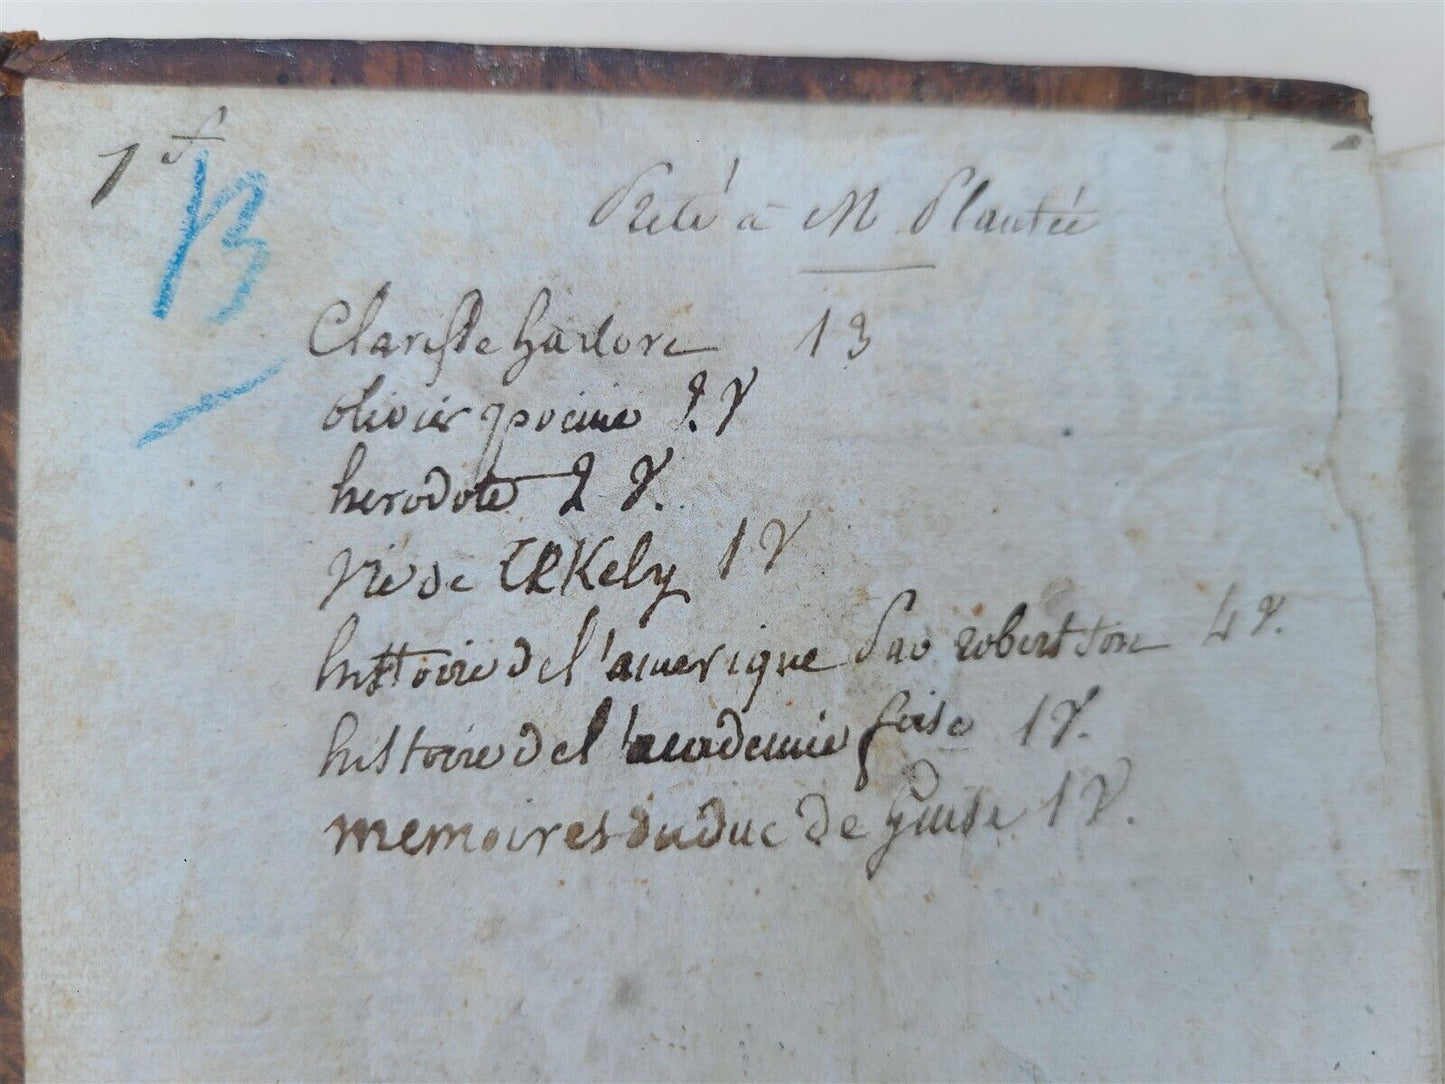 1 f
13
Preté à M Plantée
Clarisse harlore 13
olivier poeme 2 V
herodote 2 V.
vie de TEKely 1 V
histoire de l'amerique par robertson 4 V.
histoire de l'academie frise 1 V.
memoires du duc de Guise 1 V.